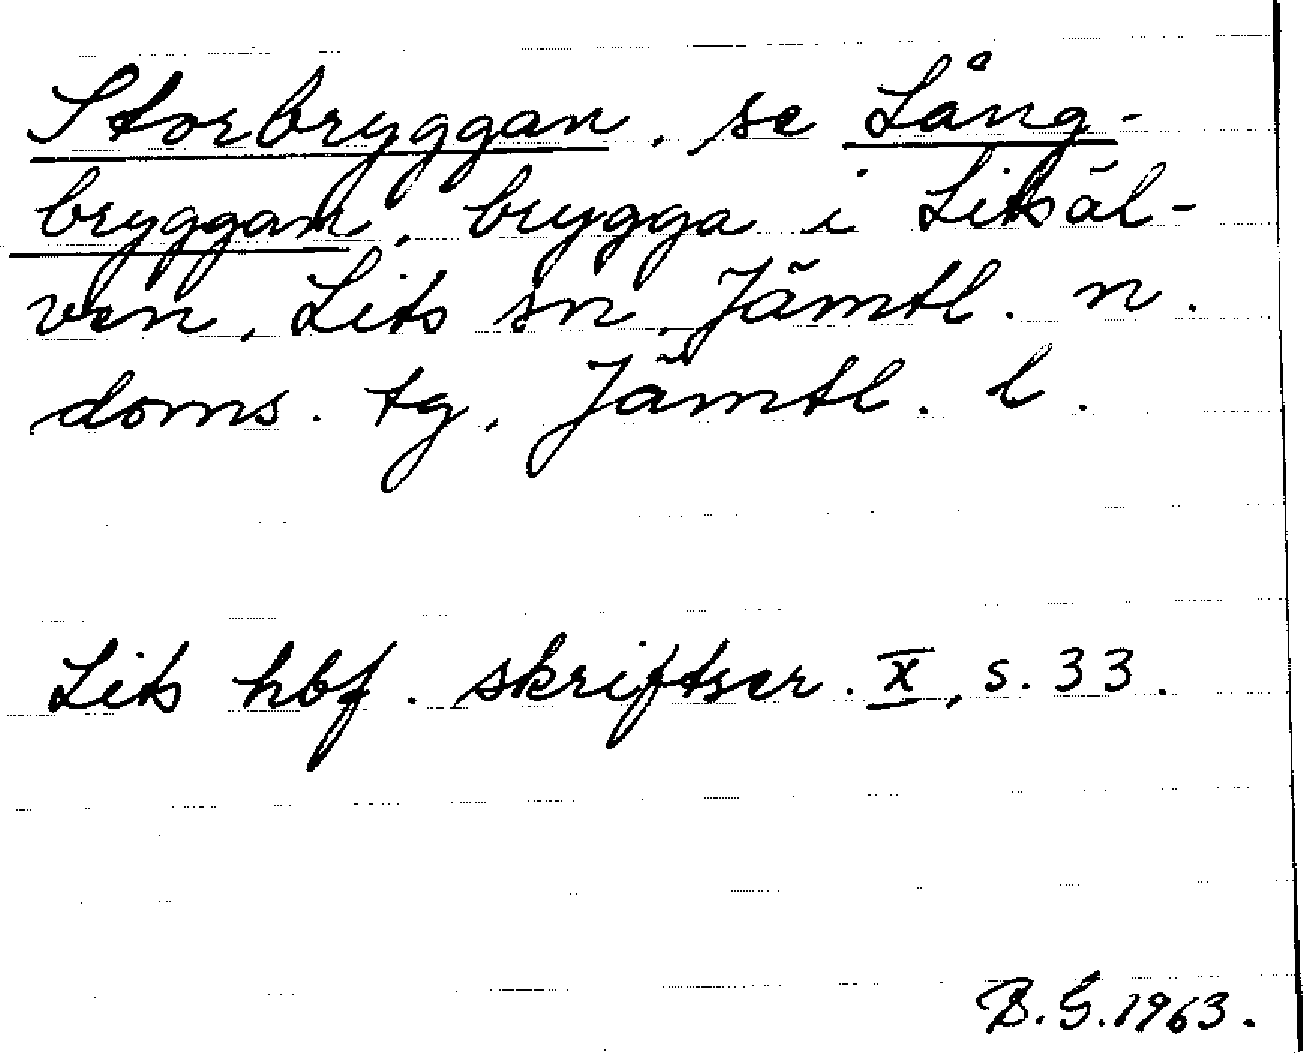 Storbryggan, se Lång-
bryggan, brygga i Litsäl-
ven, Lits sn, Jämtl. n.
doms. tg, Jämtl. l.
Lits hbf. skriftser. X, s. 33.
B.G. 1963.